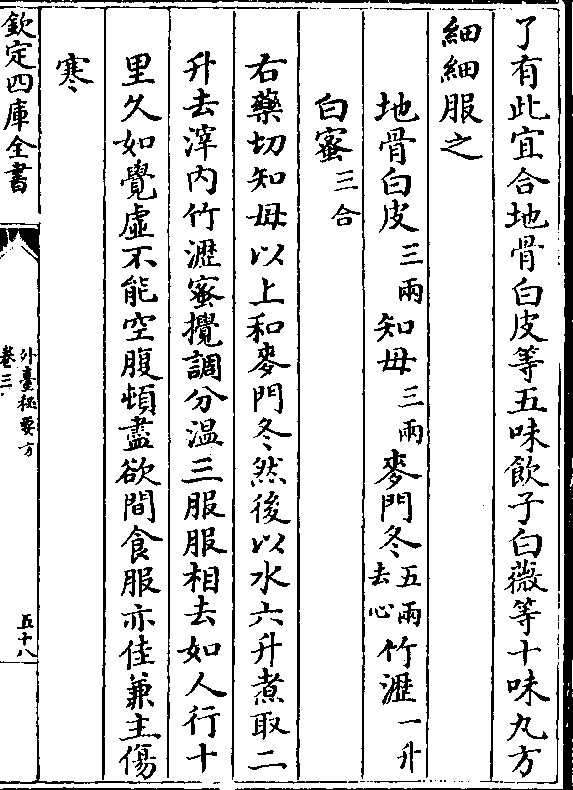 了有此宜合地骨白皮等五味飲子白薇等十味丸方
細細服之
地骨白皮三兩知母三兩麥門冬五兩去心竹瀝一升
白蜜三合
右藥切知母以上和麥門冬然後以水六升煮取二
升去滓内竹瀝蜜攪調分温三服服相去如人行十
里久如覺虛不能空腹頓盡欲間食服亦佳兼主傷
寒
欽定四庫全書
外臺秘要方
卷三
五十八